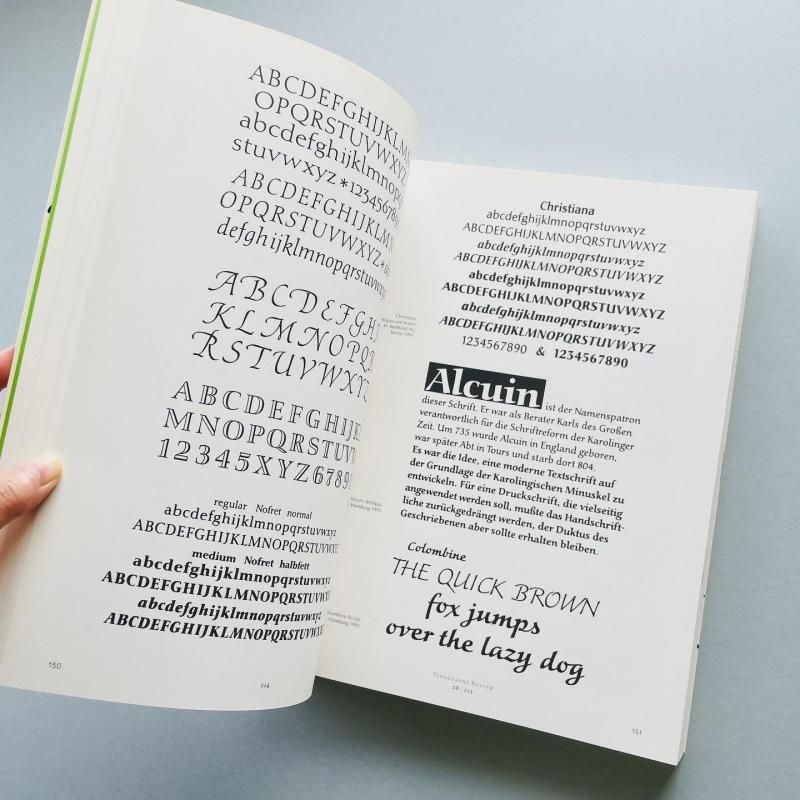 ABCDEFGHIJKL
OPQRSTUVWXYZ
abcdefghijklmnop
stuvwxyz*1234567890
ABCDEFGHIJKL
OPQRSTUVWXYZ
defghijklmnopqrstuvwxyz
ABCDEFGHI
KLMNOPQ
RSTUVWXYZ
ABCDEFGHI
MNOPQRSTU
12345XYZ67890
regular Nofret normal
abcdefghijklmnopqrstuvwxyz
ABCDEFGHIJKLMNOPQRSTUVWXYZ
medium Nofret halbfett
abcdefghijklmnopqrstuvwxyz
ABCDEFGHIJKLMNOPQRSTUVWXYZ
abcdefghijklmnopqrstuvwxyz
ABCDEFGHIJKLMNOPQRSTUVWXYZ
150
014
Christiana
H. Berthold AG
Berlin 1991
Alcuin Antiqua
Hamburg 1991
Colombine Script
Hamburg 1991
Christiana
abcdefghijklmnopqrstuvwxyz
ABCDEFGHIJKLMNOPQRSTUVWXYZ
abcdefghijklmnopqrstuvwxyz
ABCDEFGHIJKLMNOPQRSTUVWXYZ
abcdefghijklmnopqrstuvwxyz
ABCDEFGHIJKLMNOPQRSTUVWXYZ
abcdefghijklmnopqrstuvwxyz
ABCDEFGHIJKLMNOPQRSTUVWXYZ
1234567890 & 1234567890
Alcuin ist der Namenspatron
dieser Schrift. Er war als Berater Karls des Großen
verantwortlich für die Schriftreform der Karolinger
Zeit. Um 735 wurde Alcuin in England geboren,
war später Abt in Tours und starb dort 804.
Es war die Idee, eine moderne Textschrift auf
der Grundlage der Karolingischen Minuskel zu
entwickeln. Für eine Druckschrift, die vielseitig
angewendet werden soll, mußte das Handschrift-
liche zurückgedrängt werden, der Duktus des
Geschriebenen aber sollte erhalten bleiben.
Colombine
THE QUICK BROWN
fox jumps
over the lazy dog
Typography Review
08 | 015
151